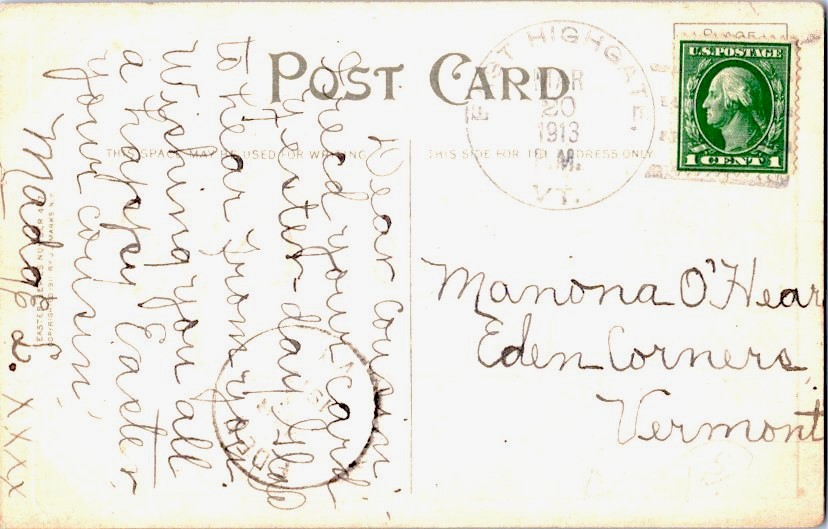 POST CARD
THIS SPACE MAY BE USED FOR WRITING
THIS SIDE FOR THE ADDRESS ONLY
EAST HIGHGATE,
MAR
20
1913
P.M.
VT.
U.S. POSTAGE
1 CENT 1
Dear cousin.
Rec'd your card
yester-day. Glad
to hear from you.
Wishing you all
a happy Easter
your cousin,
Madge L. XXXX
Manona O'Hear
Eden Corners,
Vermont